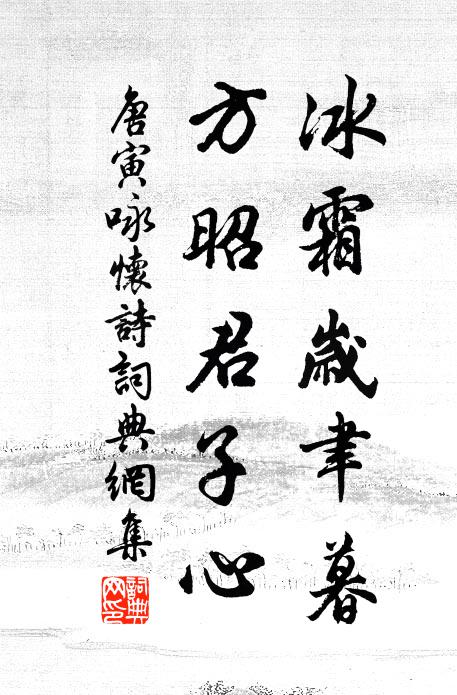 冰霜歲聿暮
方昭君子心
唐寅咏懷詩詞典網集
詞典网印